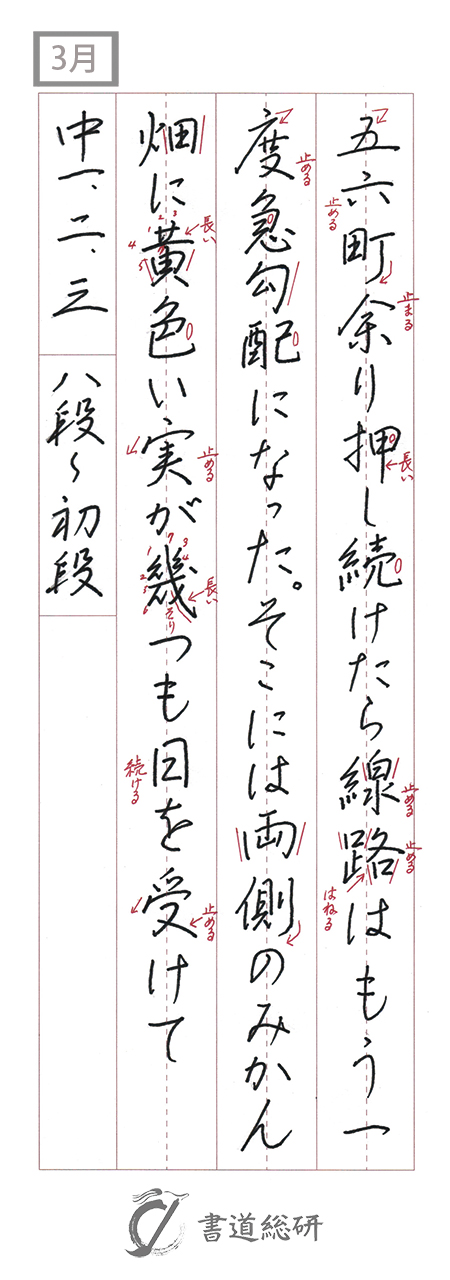 3月
五六町余り押し続けたら線路はもう一
止める
止まる
長い
止める
止める
はねる
度急勾配になった。そこには両側のみかん
止める
畑に黄色い実が幾つも日を受けて
1 2 3
4
5
長い
止める
1 7 3
2 4
5
6
長い
そり
続ける
止める
中一、二、三
八段〜初段
書道総研